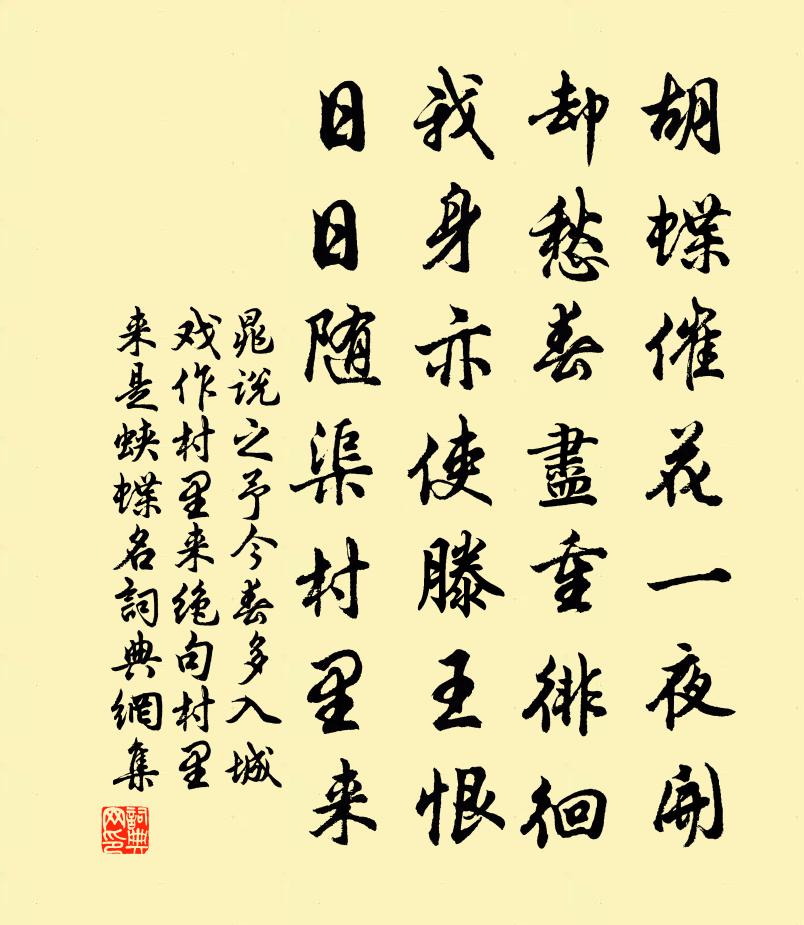 胡蝶催花一夜開
却愁春盡重徘徊
我身亦使滕王恨
日日随渠村里来
晁説之予今春多入城
戏作村里来绝句村里
来是蛱蝶名詞典網集
詞典
网印